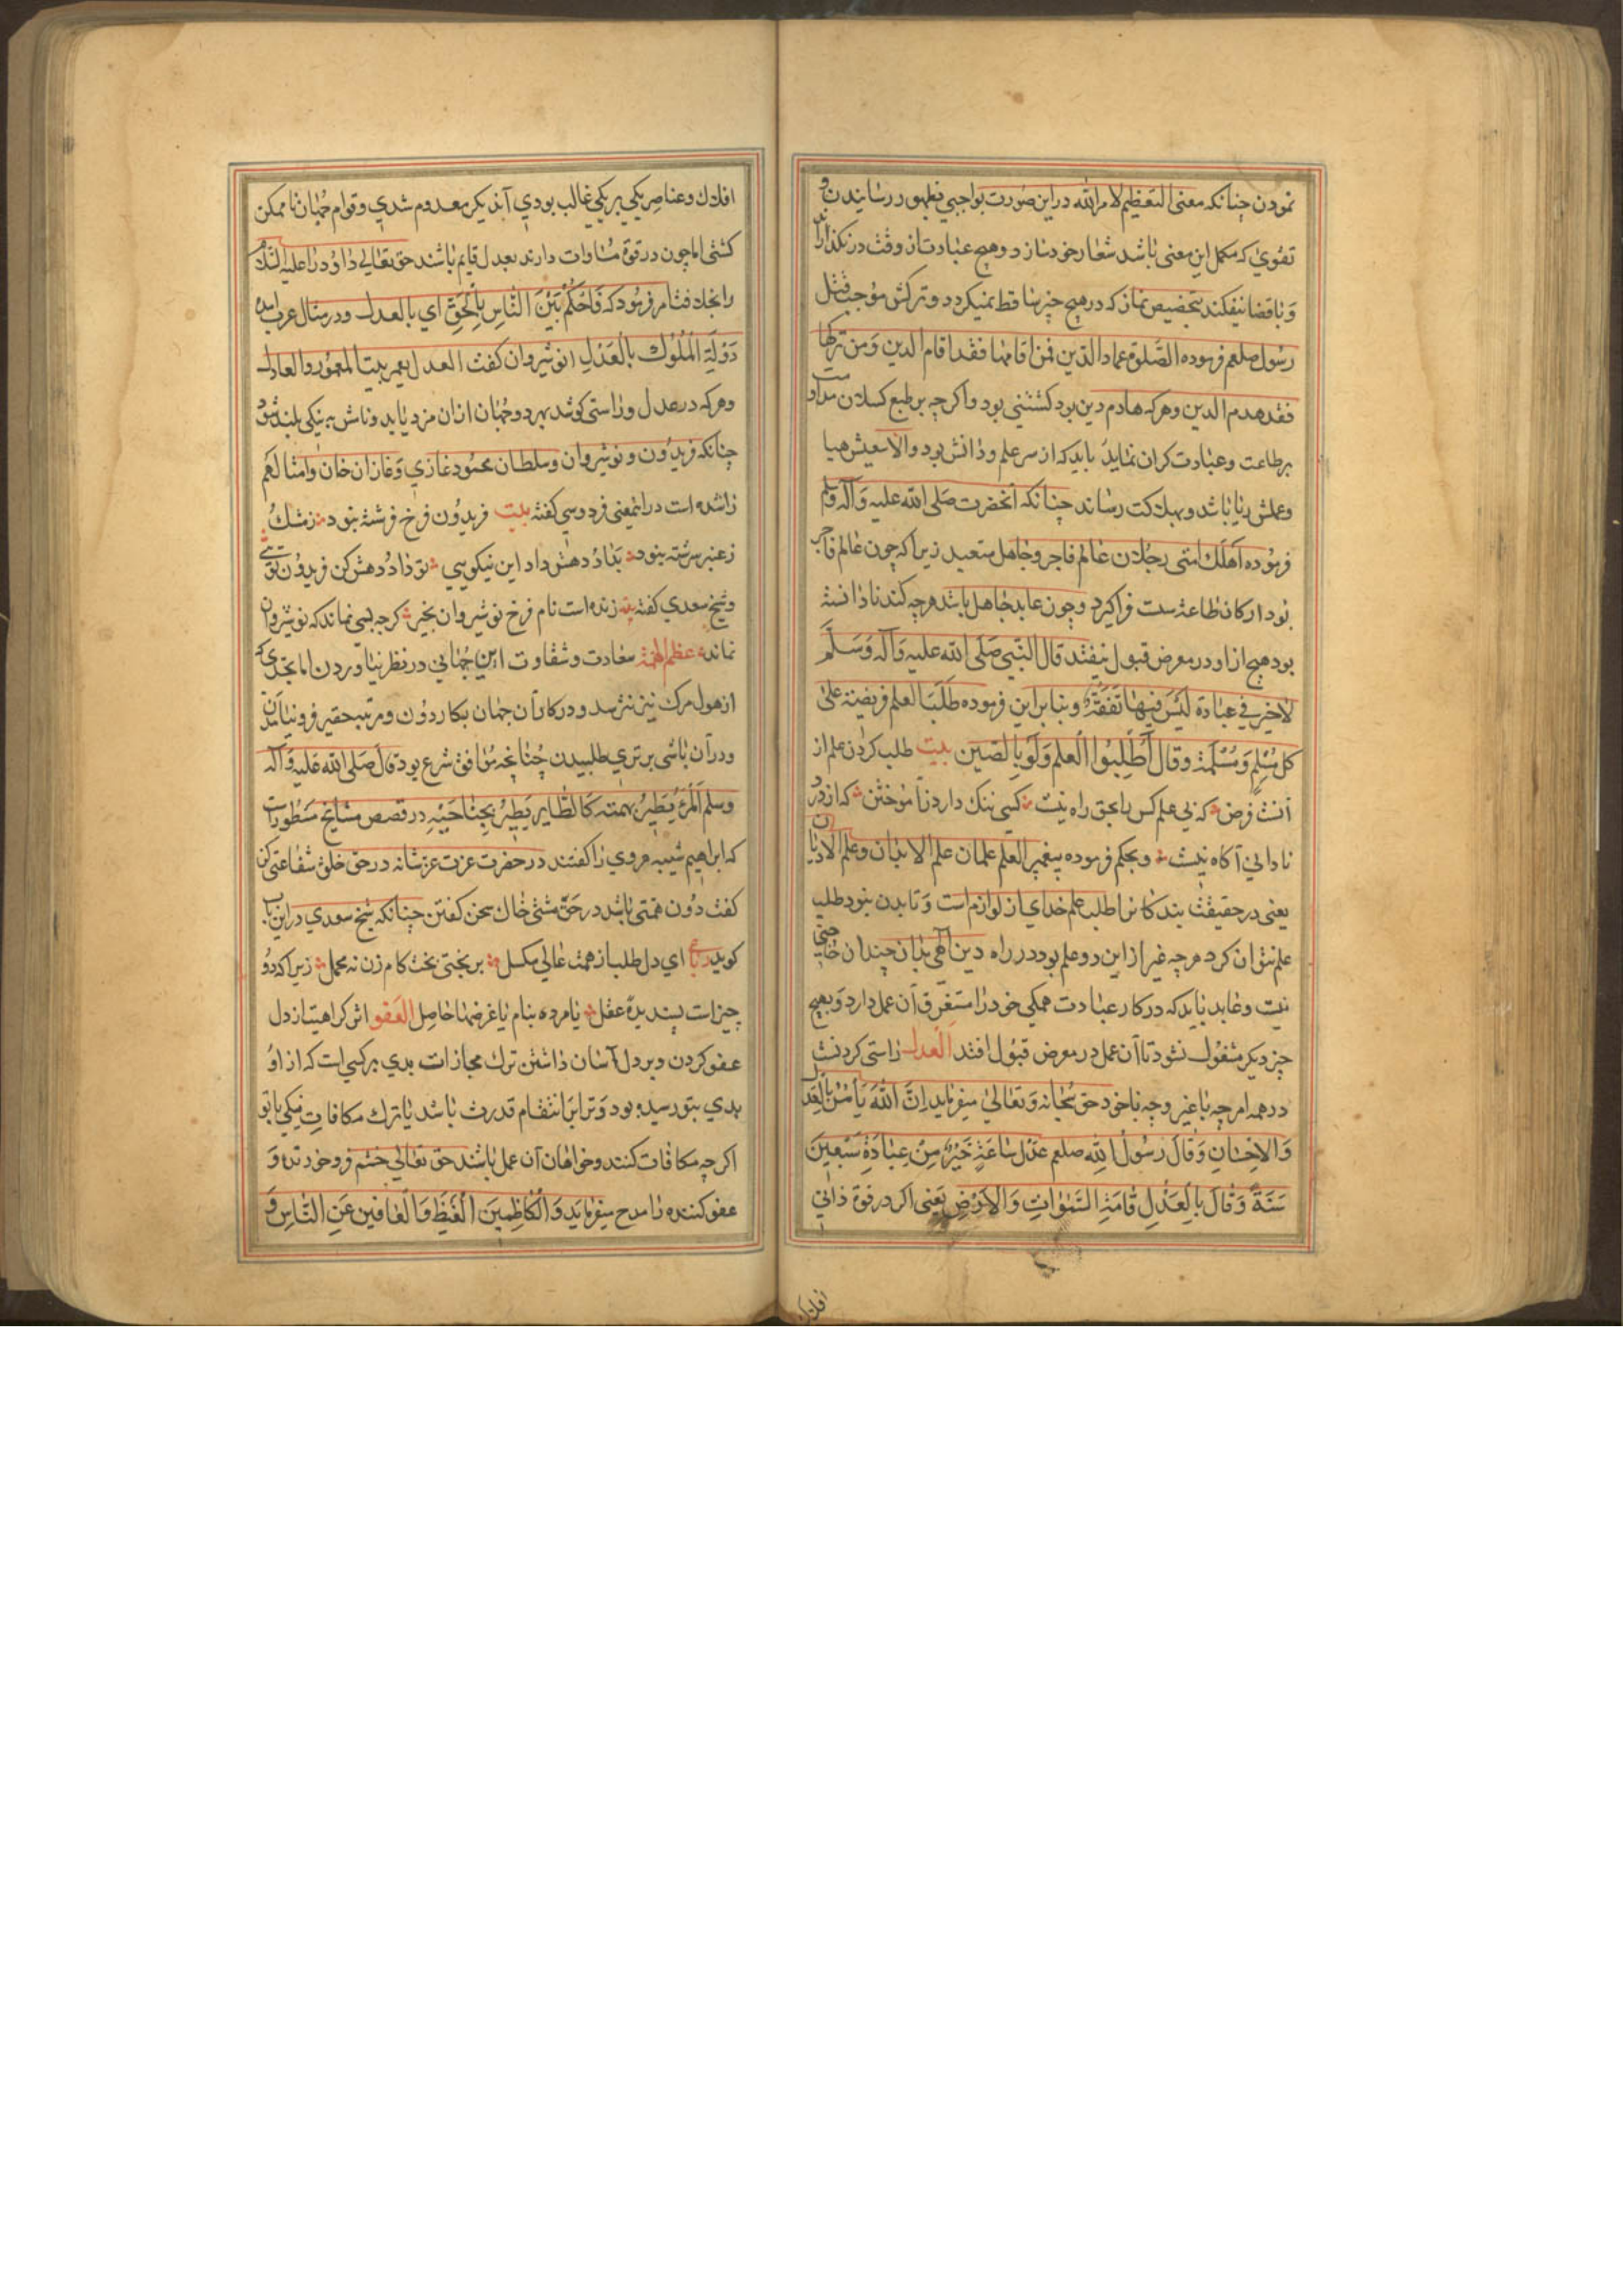 نمودن چنانکه معنی التعظیم لامر الله در این صورت بواجبی بظهور رسانیدن و
تقوی که مکمل این معنی باشد شعار خود سازد و هیچ عبادت از وقت در نکذراند
و با قضا نیفکند بتخصیص نماز که در هیچ چیز ساقط نمیکردد و ترکش موجب قتل
رسول صلعم فرموده الصلوة عماد الدین فمن اقامها فقد اقام الدین و من ترکها
فقد هدم الدین و هرکه هادم دین بود کشتنی بود و اکرچه بر طبع کسلان مداومت
بر طاعت و عبادت کران نماید باید که از سر علم و دانش بود والا سعیش هبا
و عملش ریا باشد و بهلاکت رساند چنانکه آنحضرت صلی الله علیه و آله وسلم
فرموده اهلک امتی رجلان عالم فاجر و جاهل متعبد زیرا که چون عالم فاجر
بود ارکان طاعت سست فرا کیرد و چون عابد جاهل باشد هرچه کند نادانسته
بود هیچ از او در معرض قبول نیفتد قال النبی صلی الله علیه و آله وسلم
لا خیر فی عبادة لیس فیها تفقه و بنابراین فرموده طلب العلم فریضة علی
کل مسلم و مسلمة و قال اطلبوا العلم ولو بالصین بیت طلب کردن علم از
آنست فرض که بی علم کس را بحق راه نیست کسی ننک دارد ز آموختن که از درد
نادانی آکاه نیست و بحکم فرموده پیغمبر العلم علمان علم الابدان و علم الادیان
یعنی در حقیقت بندکانرا طلب علم خدای از لوازم است و تا بدن نبود طلب
علم نتوان کرد هرچه غیر از این دو علم بود در راه دین آلهی بدان چندان حاجتی
نیست و عابد باید که در کار عبادت همکی خود را مستغرق آن عمل دارد و بهیچ
چیز دیکر مشغول نشود تا آن عمل در معرض قبول افتد العدل راستی کردنست
در همه امر چه با غیر و چه با خود حق سبحانه و تعالی میفرماید ان الله یامر بالعدل
والاحسان و قال رسول الله صلعم عدل ساعة خیر من عبادة سبعین
سنة و قال بالعدل قامت السموات والارض یعنی اکر در قوة ذاتی
افلاک
افلاک و عناصر یکی بر یکی غالب بودی آن دیکر معدوم شدی و قوام جهان ناممکن
کشتی اما چون در قوة مساوات دارند بعدل قایم باشند حق تعالی داود را علیه السلام
فرمود که فاحکم بین الناس بالحق ای بالعدل و در مثال عرب آمده
دولة الملوک بالعدل انوشیروان کفت العدل یعمر بیت المعمور والعادل
و هرکه در عدل و راستی کوشد بهر دو جهان ازان مزد یابد و نامش به نیکی بلند شود
چنانکه فریدون و نوشیروان و سلطان محمود غازی و غازان خان و امثالهم
را شده است در اینمعنی فردوسی کفته بیت فریدون فرخ فرشته نبود ز مشک
ز عنبر سرشته نبود بداد و دهش داد این نیکویی تو داد و دهش کن فریدون توئی
و شیخ سعدی کفته بیت زنده است نام فرخ نوشیروان بخیر کرچه بسی نماند که نوشیروان
نماند عظم الهمة سعادت و شقاوت این جهانی در نظر نیاوردن تا بحدی که
از هول مرک نیز نترسد و در کار آن جهان بکار دون و مرتبه حقیر فرو نیامدن
و در آن باشی برتری طلبیدن چنانچه موافق شرع بود قال صلی الله علیه و آله
وسلم المرء یطیر بهمته کالطایر یطیر بجناحیه در قصص مشایخ مسطور است
که ابراهیم شیبه هروی را کفتند در حضرت عزت عز شانه در حق خلق شفاعتی کن
کفت دون همتی باشد در حق مشتی خاک سخن کفتن چنانکه شیخ سعدی در این باب
کوید رباعی ای دل طلب از همت عالی مکسل بر بختی بخت کام زن نه محمل زیرا که دو
چیز است پسندیدۀ عقل یا مرده بنام یا غرضها حاصل العفو اثر کراهیت از دل
عفو کردن و بر دل آسان داشتن ترک مجازات بدی بر کسی است که از او
بدی بتو رسیده بود و ترا بر انتقام قدرت باشد یا ترک مکافات نیکی با تو
اکرچه مکافات کنند و خواهان آن عمل باشند حق تعالی خشم فرو خورنده و
عفو کننده را مدح میفرماید والکاظمین الغیظ والعافین عن الناس و